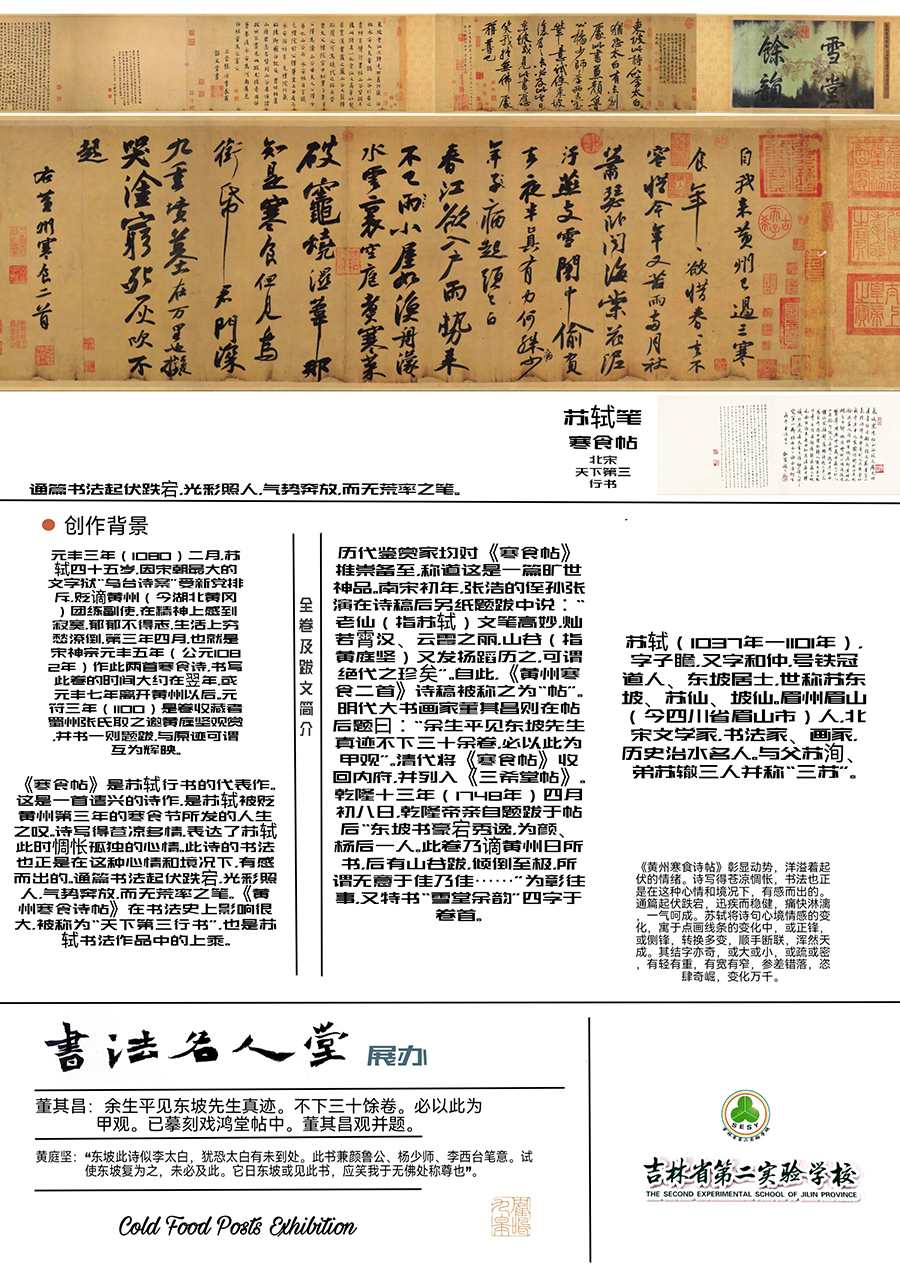 雪堂
餘韻
東坡此詩似李太白
猶恐太白有未到
處此書兼顏魯
公楊少師李西臺
筆意試使東坡
復為之未必及此它日
東坡或見此書應
笑我於無佛處
稱尊也
自我来黄州已過三寒
食年〻欲惜春〻去不
容惜今年又苦雨兩月秋
蕭瑟卧聞海棠花泥
汙燕支雪闇中偷負
去夜半真有力何殊少
年子病起頭已白
春江欲入户雨勢来
不已雨小屋如漁舟濛〻
水雲裏空庖煮寒菜
破竈燒濕葦那
知是寒食但見烏
銜帋君門深
九重墳墓在万里也擬
哭塗窮死灰吹不
起
右黄州寒食二首
苏轼笔
寒食帖
北宋
天下第三
行书
通篇书法起伏跌宕,光彩照人,气势奔放,而无荒率之笔。
创作背景
元丰三年（1080）二月,苏
轼四十五岁,因宋朝最大的
文字狱“乌台诗案”受新党排
斥,贬谪黄州（今湖北黄冈
）团练副使,在精神上感到
寂寞,郁郁不得志,生活上穷
愁潦倒,第三年四月,也就是
宋神宗元丰五年（公元108
2年）作此两首寒食诗,书写
此卷的时间大约在翌年,或
元丰七年离开黄州以后。元
符三年（1100）是卷收藏者
蜀州张氏取之邀黄庭坚观赏
,并书一则题跋,与原迹可谓
互为辉映。
《寒食帖》是苏轼行书的代表作。
这是一首遣兴的诗作,是苏轼被贬
黄州第三年的寒食节所发的人生
之叹。诗写得苍凉多情,表达了苏轼
此时惆怅孤独的心情。此诗的书法
也正是在这种心情和境况下,有感
而出的。通篇书法起伏跌宕,光彩照
人,气势奔放,而无荒率之笔。《黄
州寒食诗帖》在书法史上影响很
大,被称为“天下第三行书”,也是苏
轼书法作品中的上乘。
全卷及跋文简介
历代鉴赏家均对《寒食帖》
推崇备至,称道这是一篇旷世
神品。南宋初年,张浩的侄孙张
演在诗稿后另纸题跋中说：“
老仙（指苏轼）文笔高妙,灿
若霄汉、云霞之丽,山谷（指
黄庭坚）又发扬蹈历之,可谓
绝代之珍矣”。自此,《黄州寒
食二首》诗稿被称之为“帖”。
明代大书画家董其昌则在帖
后题曰：“余生平见东坡先生
真迹不下三十余卷,必以此为
甲观”。清代将《寒食帖》收
回内府,并列入《三希堂帖》。
乾隆十三年（1748年）四月
初八日,乾隆帝亲自题跋于帖
后“东坡书豪宕秀逸,为颜、
杨后一人。此卷乃谪黄州日所
书,后有山谷跋,倾倒至极,所
谓无意于佳乃佳……”为彰往
事,又特书“雪堂余韵”四字于
卷首。
苏轼（1037年—1101年）,
字子瞻,又字和仲,号铁冠
道人、东坡居士,世称苏东
坡、苏仙、坡仙。眉州眉山
（今四川省眉山市）人,北
宋文学家,书法家、画家,
历史治水名人。与父苏洵、
弟苏辙三人并称“三苏”。
《黄州寒食诗帖》彰显动势，洋溢着起
伏的情绪。诗写得苍凉惆怅，书法也正
是在这种心情和境况下，有感而出的。
通篇起伏跌宕，迅疾而稳健，痛快淋漓
，一气呵成。苏轼将诗句心境情感的变
化，寓于点画线条的变化中，或正锋，
或侧锋，转换多变，顺手断联，浑然天
成。其结字亦奇，或大或小，或疏或密
，有轻有重，有宽有窄，参差错落，恣
肆奇崛，变化万千。
書法名人堂 展办
董其昌：余生平见东坡先生真迹。不下三十馀卷。必以此为
甲观。已摹刻戏鸿堂帖中。董其昌观并题。
黄庭坚：“东坡此诗似李太白，犹恐太白有未到处。此书兼颜鲁公、杨少师、李西台笔意。试
使东坡复为之，未必及此。它日东坡或见此书，应笑我于无佛处称尊也”。
Cold Food Posts Exhibition
SESY
吉林省第二实验学校
THE SECOND EXPERIMENTAL SCHOOL OF JILIN PROVINCE